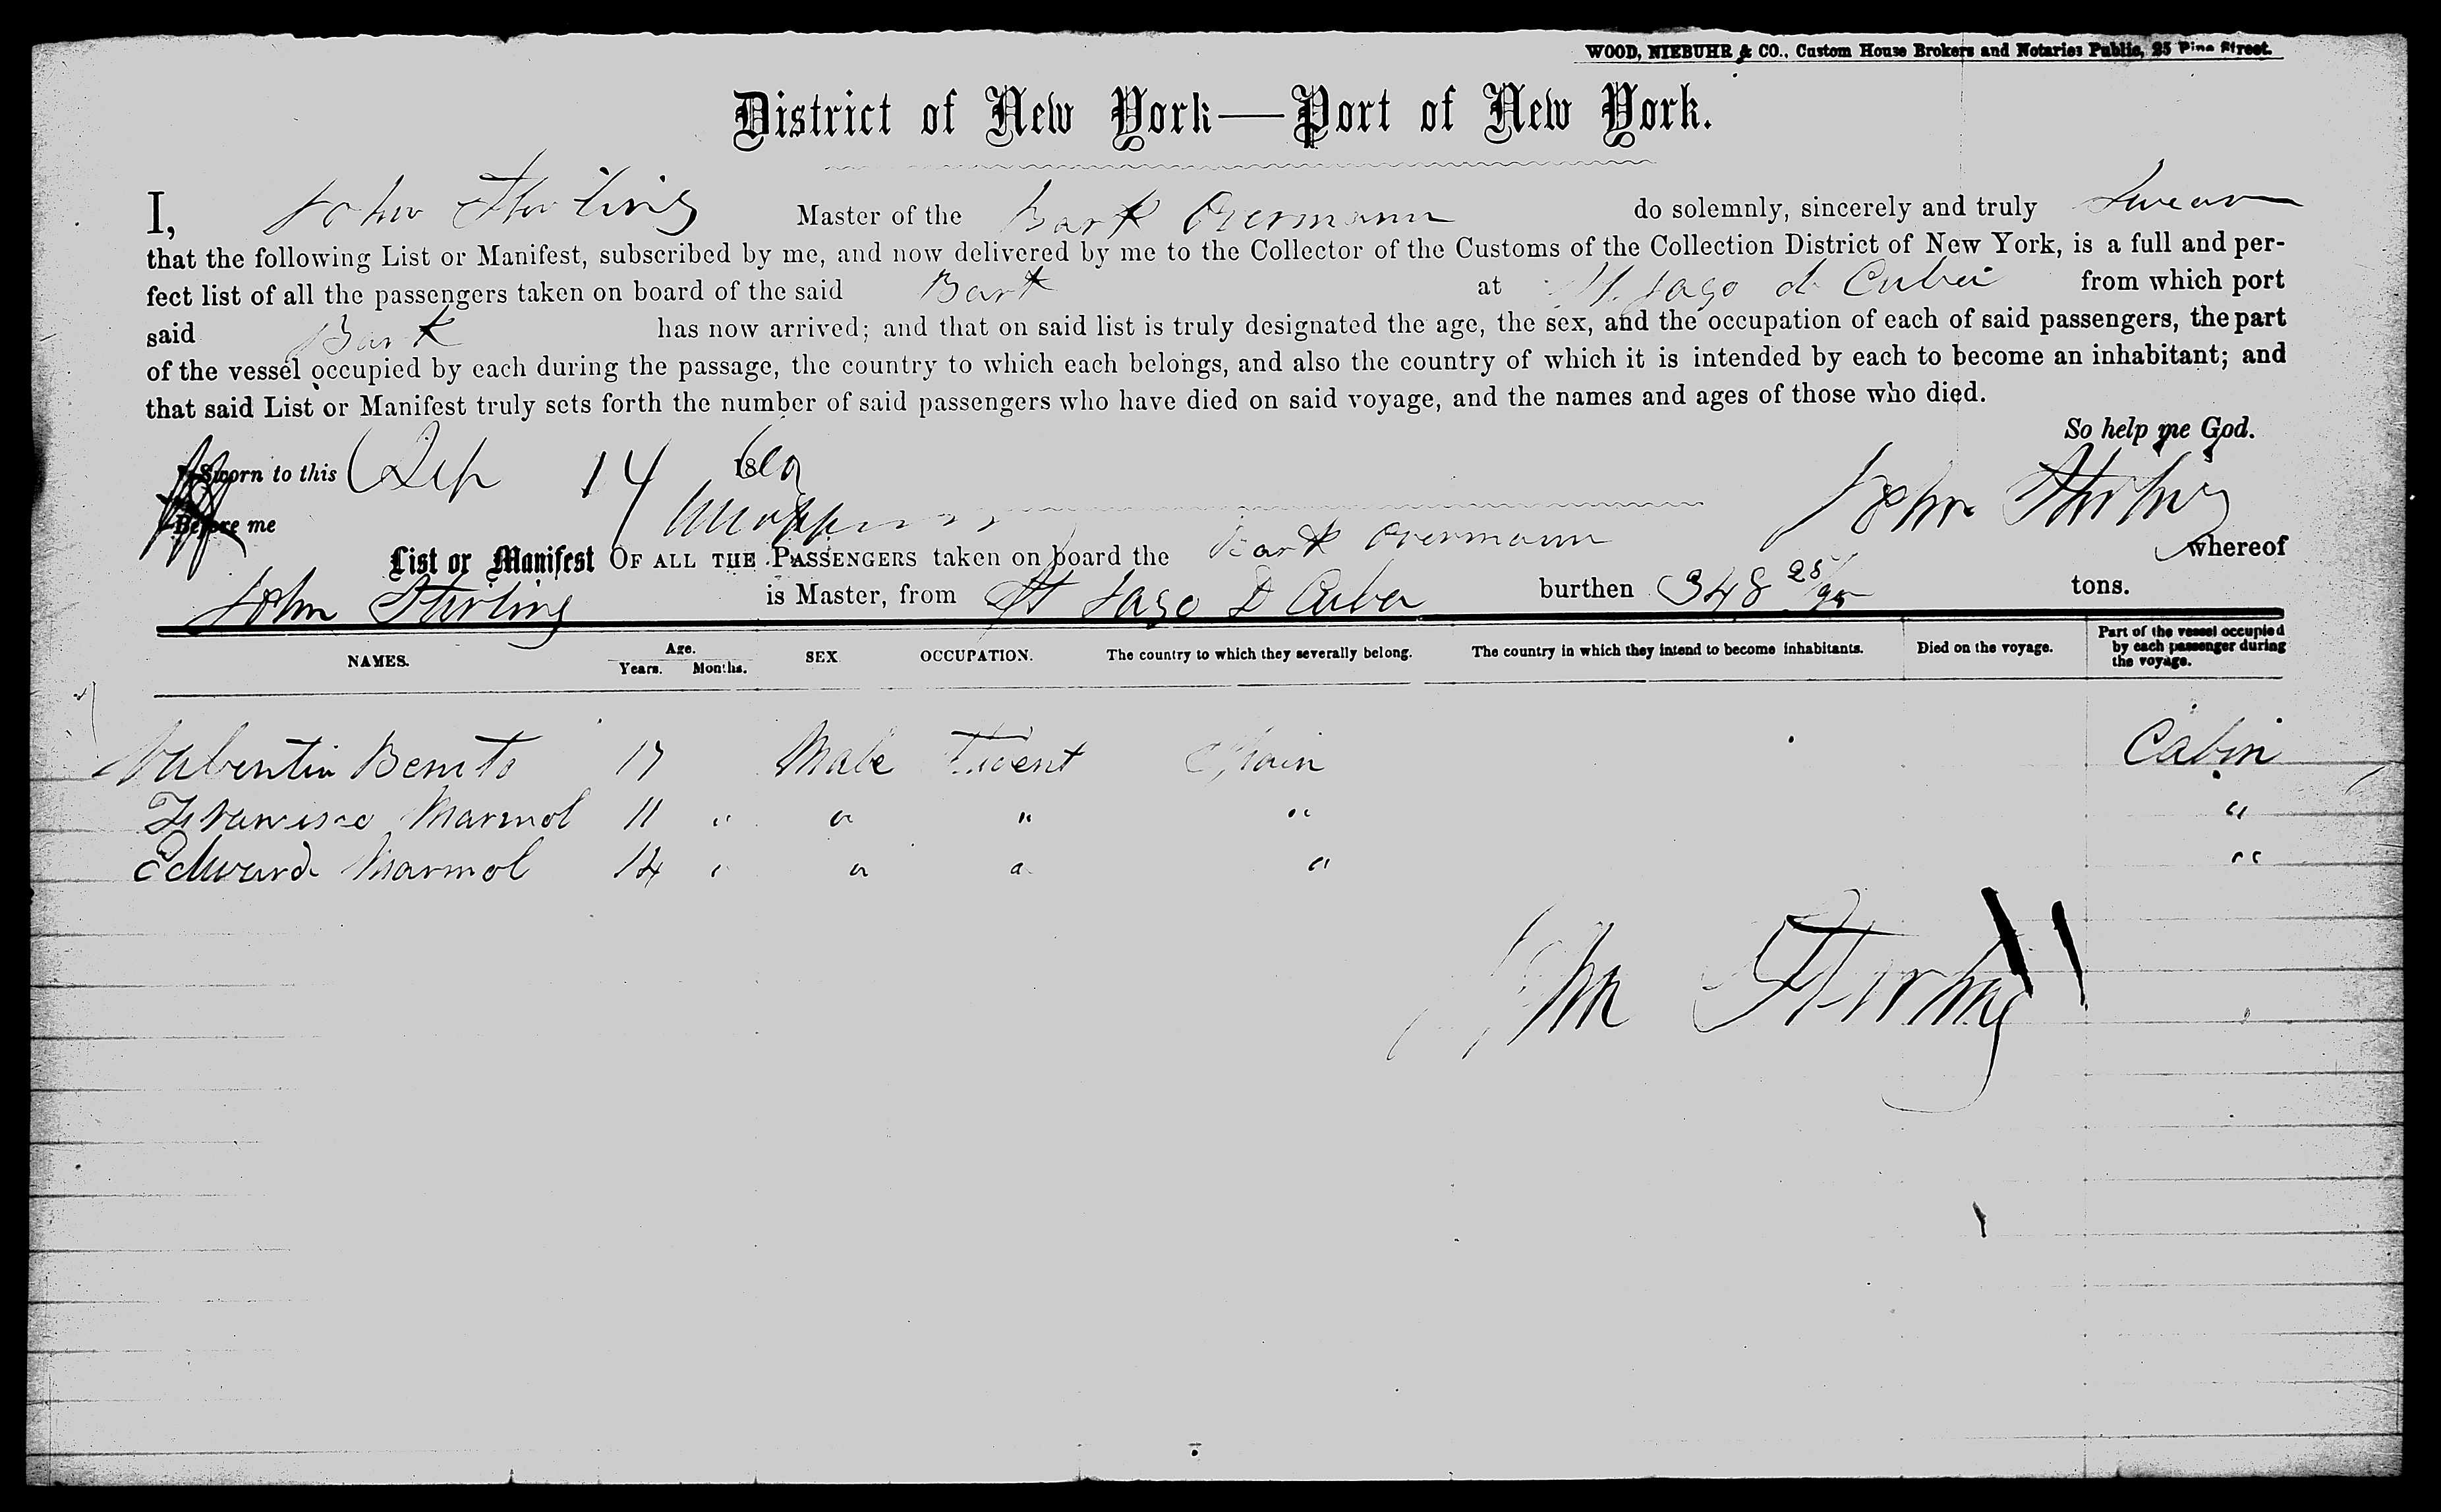 WOOD, NIEBUHR & CO., Custom House Brokers and Notaries Public, 25 Pine Street.
District of New York—Port of New York.
I, John Stirling Master of the Bark Overmann do solemnly, sincerely and truly Swear
that the following List or Manifest, subscribed by me, and now delivered by me to the Collector of the Customs of the Collection District of New York, is a full and per-
fect list of all the passengers taken on board of the said Bark at St. Jago d Cuba from which port
said Bark has now arrived; and that on said list is truly designated the age, the sex, and the occupation of each of said passengers, the part
of the vessel occupied by each during the passage, the country to which each belongs, and also the country of which it is intended by each to become an inhabitant; and
that said List or Manifest truly sets forth the number of said passengers who have died on said voyage, and the names and ages of those who died.
So help me God.
Sworn to this Sep 14 18 John Stirling
Before me
List or Manifest OF ALL THE PASSENGERS taken on board the Bark Overmann whereof
John Stirling is Master, from St Jago D Cuba burthen 348 28/95 tons.
NAMES. Age. Years. Months. SEX OCCUPATION. The country to which they severally belong. The country in which they intend to become inhabitants. Died on the voyage. Part of the vessel occupied by each passenger during the voyage.
Valentin Benito 17 Male Spain Cabin
Francisco Marmol 11 " " " " "
Edward Marmol 14 " " " " "
John Stirling